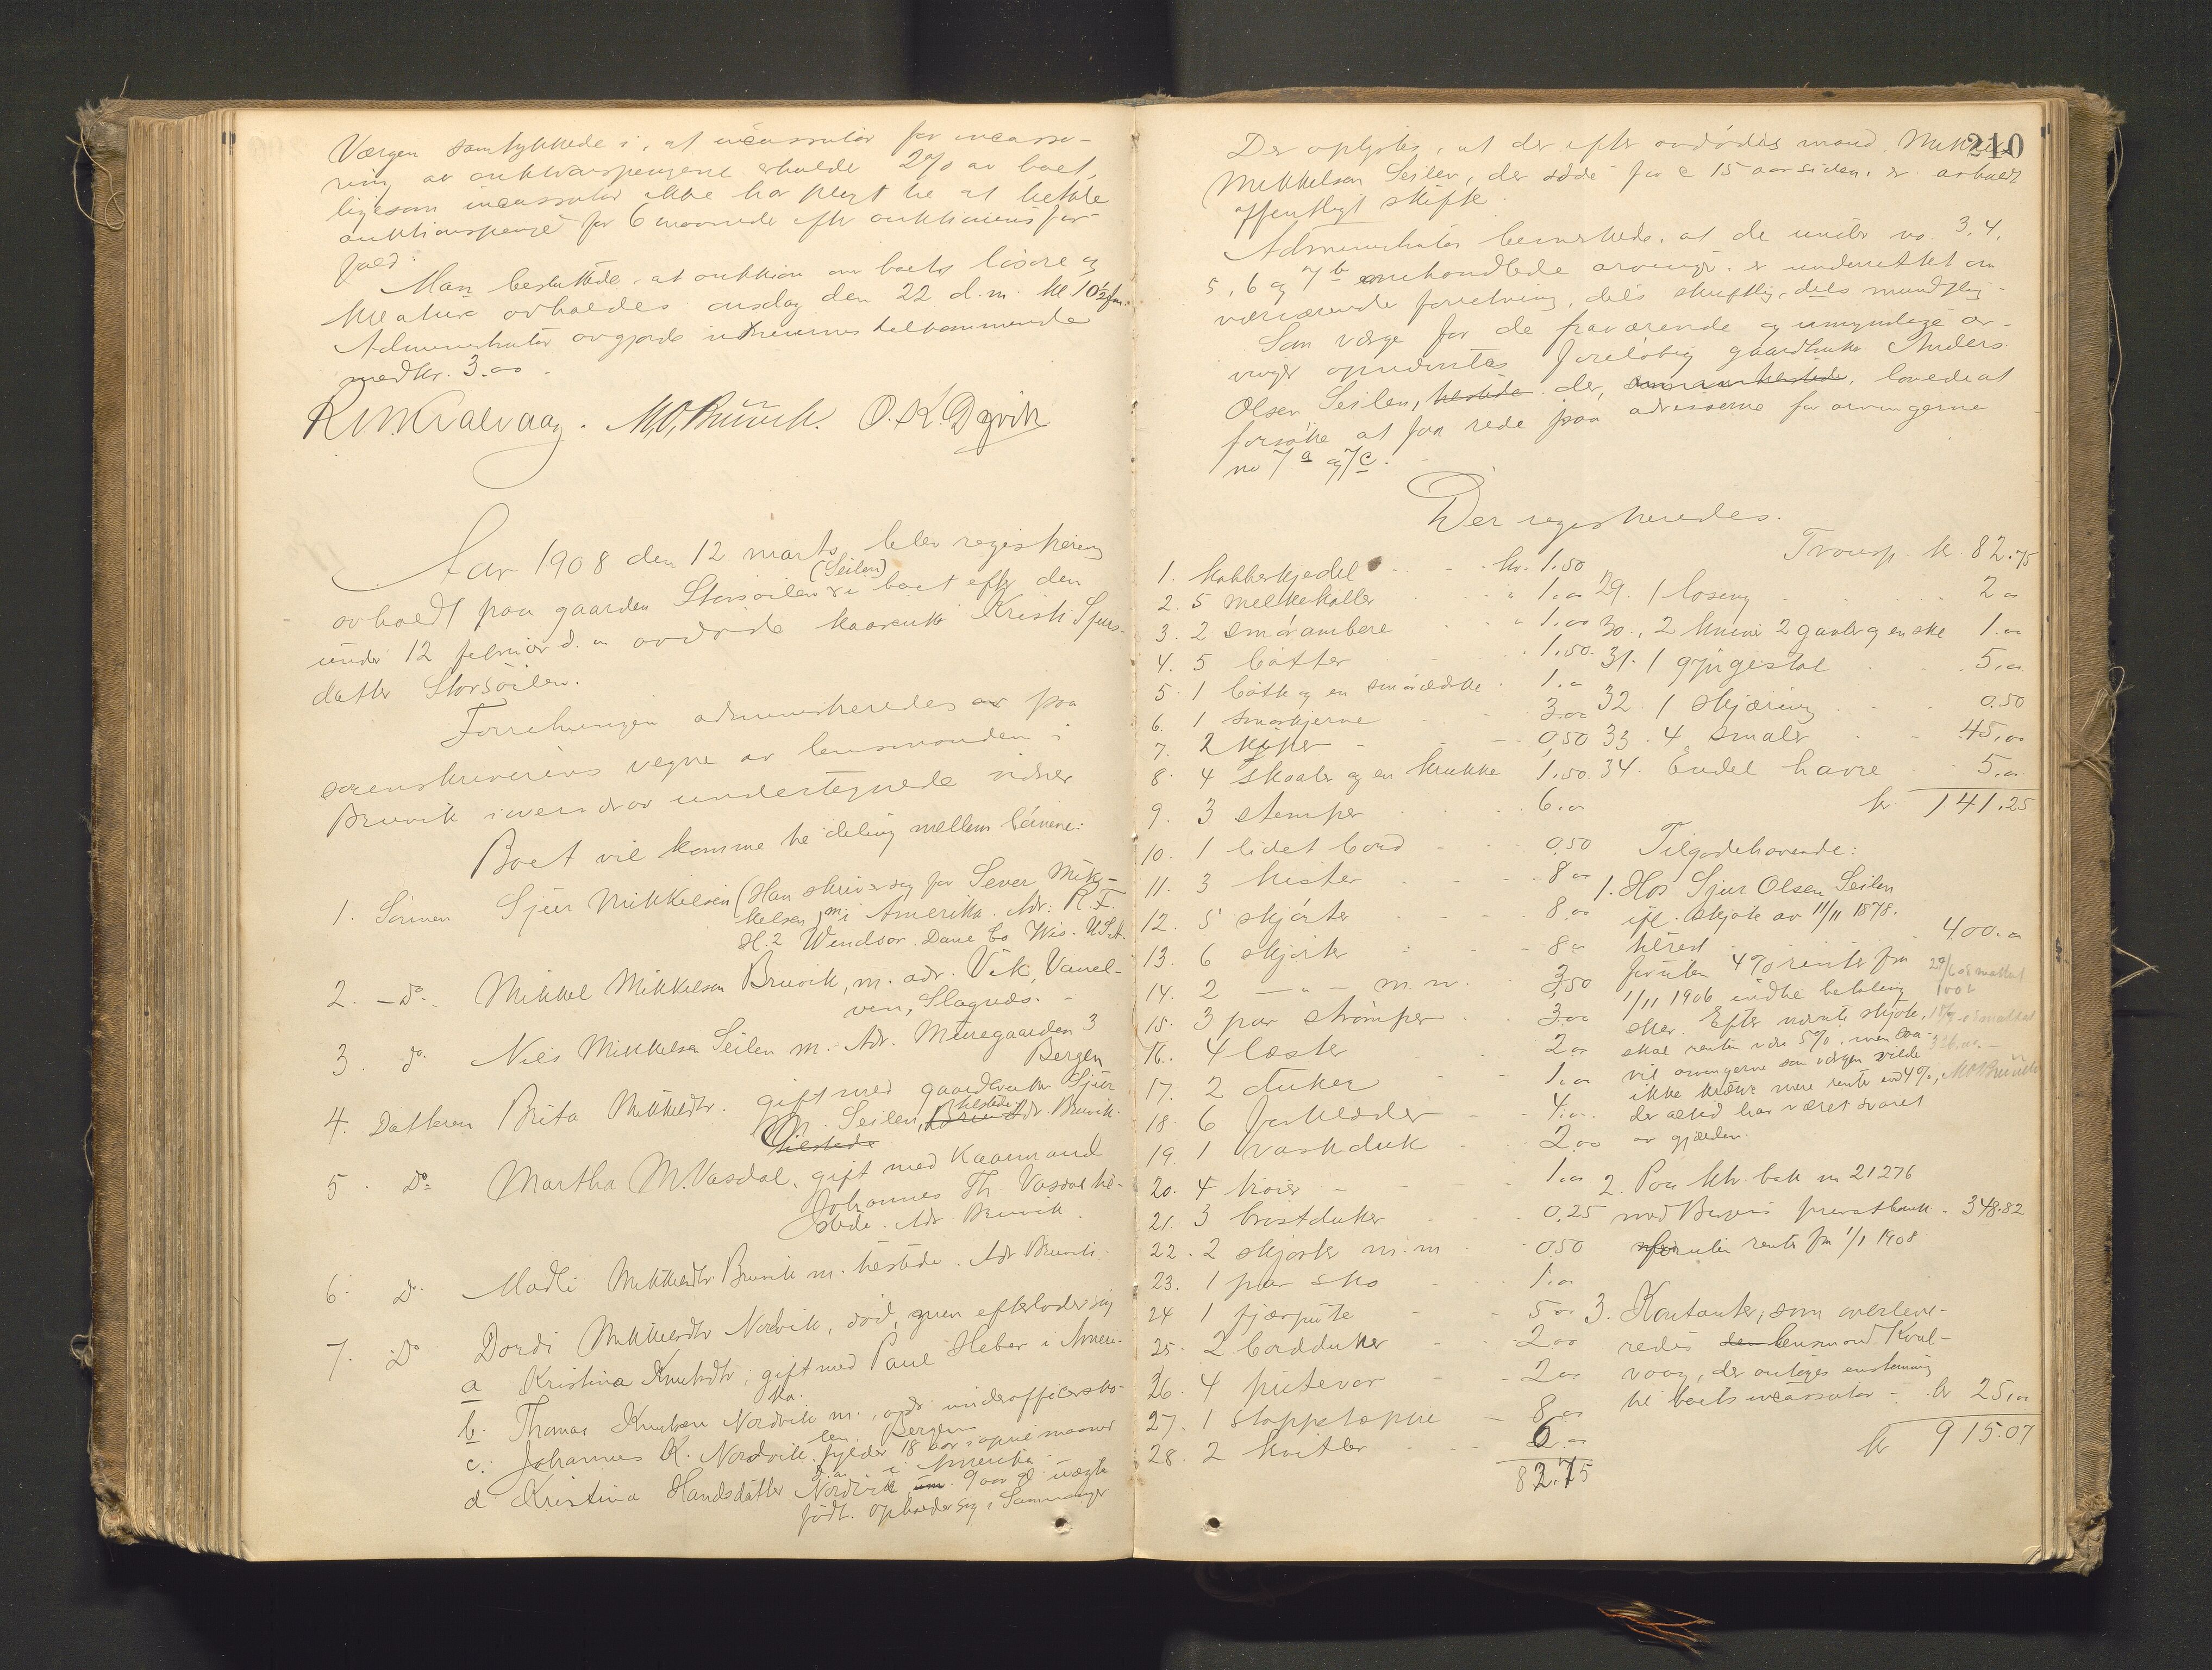 Værgen samtykkede i, at incassator for incasso-
ring av auktionspengene erholder 2% av boet,
ligesom incassator ikke har pligt til at betale
auktionspenge før 6 maaneder efter auktionens for-
fald.
Man besluttede, at auktion over boets løsøre og
kreature avholdes onsdag den 22 d.m. kl 10½ fm.
Administrator avgjorde vidnernes tilkommende
med kr. 3.00.
R.M. Kvalvaag. M.O. Bruvik. O.K. Dyvik
Aar 1908 den 12 marts blev registrering
(Seilen)
avholdt paa gaarden Storsøilen i boet efter den
under 12 februar d. a. avdøde kaarenke Kristi Sjurs-
datter Storsøilen.
Forretningen administreredes av paa
sorenskriverens vegne av lensmanden i
Bruvik i overvær av undertegnede vidner
Boet vil komme til deling mellem børnene:
1. Sønnen Sjur Mikkelsen (Han skriver sig for Sever Mik-
kelsen) m. i Amerika. Adr: R.F.
H. 2 Windsor. Dane Co Wis. U.S.A.
2. -do- Mikkel Mikkelsen Bruvik, m. adr. Vik, Vanel-
ven, Slagnæs.
3. do. Nils Mikkelsen Seilen m. Adr. Muregaarden 3
Bergen
4. Datteren Brita Mikkelsdtr. gift med gaardbruker Sjur
M. Seilen, tilstede Adr. Bruvik.
tilstede
5. Do. Martha M. Vasdal, gift med kaarmand
Johannes Th. Vasdal til-
stede. Adr. Bruvik.
6. Do. Madli Mikkelsdtr Bruvik m. tilstede. Adr Bruvik.
7. Do Dordi Mikkelsdtr Nordvik, død, men efterlader sig
a Kristina Knutsdtr, gift med Paul Heber i Ameri-
ka.
b. Thomas Knutsen Nordvik m., adr. underofficersko-
len, Bergen
c. Johannes K. Nordvik fylder 18 aar i april maaned
d.a. i Amerika
d Kristina Handsdatter Nordvik, 9 aar gl. uægte
født. opholder sig i Samnanger
210
Der oplystes, at der efter avdødes mand Mikkel
Mikkelsen Seilen, der døde for c 15 aar siden, er avholdt
offentligt skifte.
Administrator bemerkede, at de under no. 3, 4,
5, 6 og 7 b omhandlede arvinger er underrettet om
nærværende forretning, dels skriftlig, dels mundtlig.
Som værge for de fraværende og umyndige ar-
vinger opnævntes foreløbig gaardbruker Anders
Olsen Seilen, tilstede der, lovede at
forsøke at faa rede paa adresserne for arvingerne
no 7 a og 7 c.
Der registreredes.
1. kobberkjedel kr. 1.50
2. 5 melkekoller " 1.00
3. 2 smørambere " 1.00
4. 5 bøtter 1.50
5. 1 bøtte og en 1.00
6. 1 smørkjerne 3.00
7. 2 kipper 0,50
8. 4 skaaler og en krukke 1.50
9. 3 stemper 6.00
10. 1 lidet bord 0.50
11. 3 kister 8.00
12. 5 skjørter 8.00
13. 6 skjorter 8.00
14. 2 -"- m.m. 3,50
15. 3 par strømper 3.00
16. 4 læster 2.00
17. 2 duker 1.00
18. 6 forklæder 4.00
19. 1 vaskduk 2.00
20. 4 troier 1.00
21. 3 brostduker 0.25
22. 2 skjorter m.m 0.50
23. 1 par sko 1.00
24 1 fjærpute 5.00
25. 2 bordduker 2.00
26. 4 putevar 2.00
27. 1 stoppeteppe 8.00
28. 2 kvitler 6.00
82.75
Transp. kr. 82.75
29. 1 loseng 2.00
30. 2 knive 2 gavler og en ske 1.00
31. 1 gyngestol 5.00
32. 1 skjæring 0.50
33. 4 smaler 45,00
34. Endel havre 5.00
kr 141.25
Tilgodehavende:
1. Hos Sjur Olsen Seilen
ifl. skjøte av 11/11 1878.
tilrest 400.00
foruten 4% renter fra
1/11 1906 indtil betaling
sker. Efter nævnte skjøte,
skal renten være 5%, men
vil arvingerne som værgen vilde
ikke kræve mere rente end 4%,
der altid har været svaret
av gjælden.
2. Paa ktr. bok no 21276
med Bergens privatbank 348.82
foruten renter fra 1/1 1908
3. Kontanter, som overleve-
redes den lensmand Kval-
vaag, der antoges enstemmig
til boets incassator kr 25,00
kr 915.07